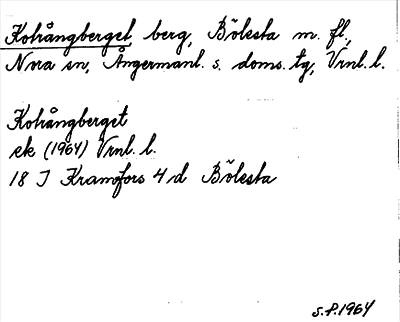 Kohångberget, berg, Bölesta m. fl.,
Nora sn, Ångermanl. s. doms. tg, Vrnl. l.
Kohångberget
ek (1964) Vrnl. l.
18 J Kramfors 4 d Bölesta
S.P. 1964